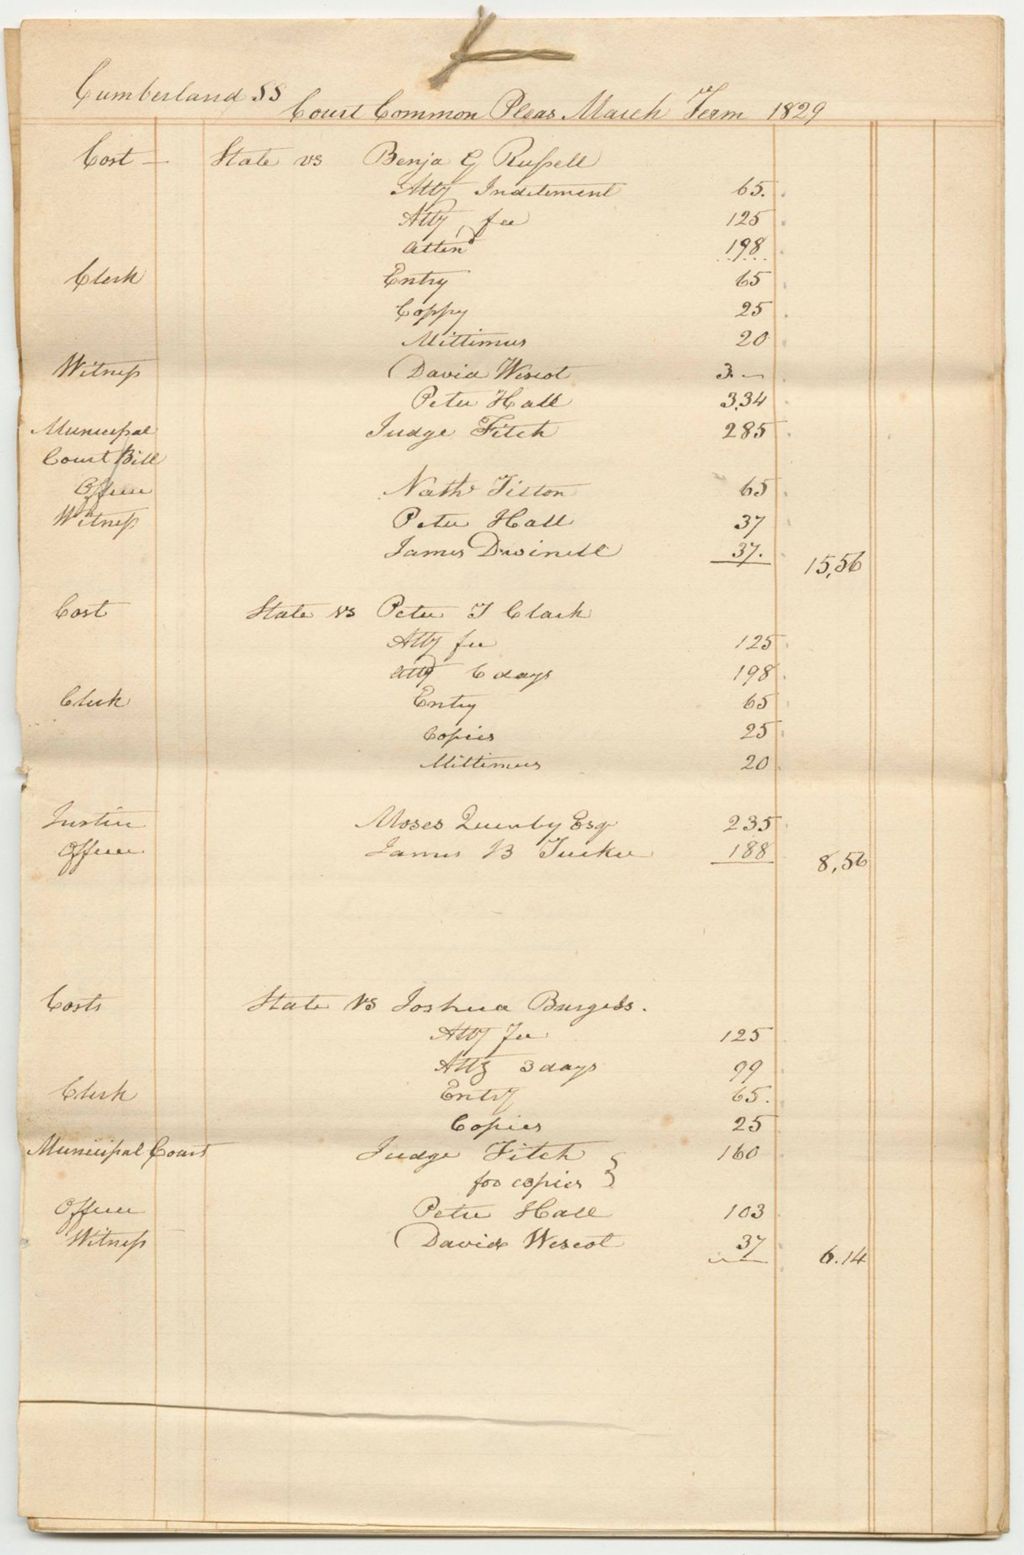 Cumberland SS
Court Common Pleas March Term 1829
Cost — State vs Benja G Russell
Atty Inditement 65.
Atty fee 125
Atten 198
Clerk Entry 65
Coppy 25
Mittimus 20
Witness David Wescot 3.—
Peter Hall 3,34
Municipal Judge Fitch 285
Court Bill
Officer Nath Tilton 65
Witness Peter Hall 37
James Dwinell 37. 15,56
Cost State vs Peter T Clark
Atty fee 125
Atty 6 days 198
Clerk Entry 65
Copies 25
Mittimus 20
Justice Moses Quinby Esq 235
Officer James B Tucker 188 8,56
Costs State vs Joshua Burgess.
Atty Fee 125
Atty 3 days 99
Clerk Entry 65.
Copies 25
Municipal Court Judge Fitch 160
for copies
Officer Peter Hall 103
Witness David Wescot 37 6.14